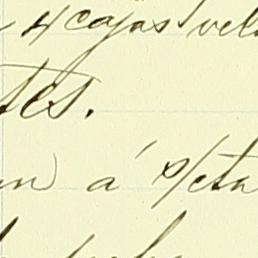 4 cajas vel
tes.
n á s/cta